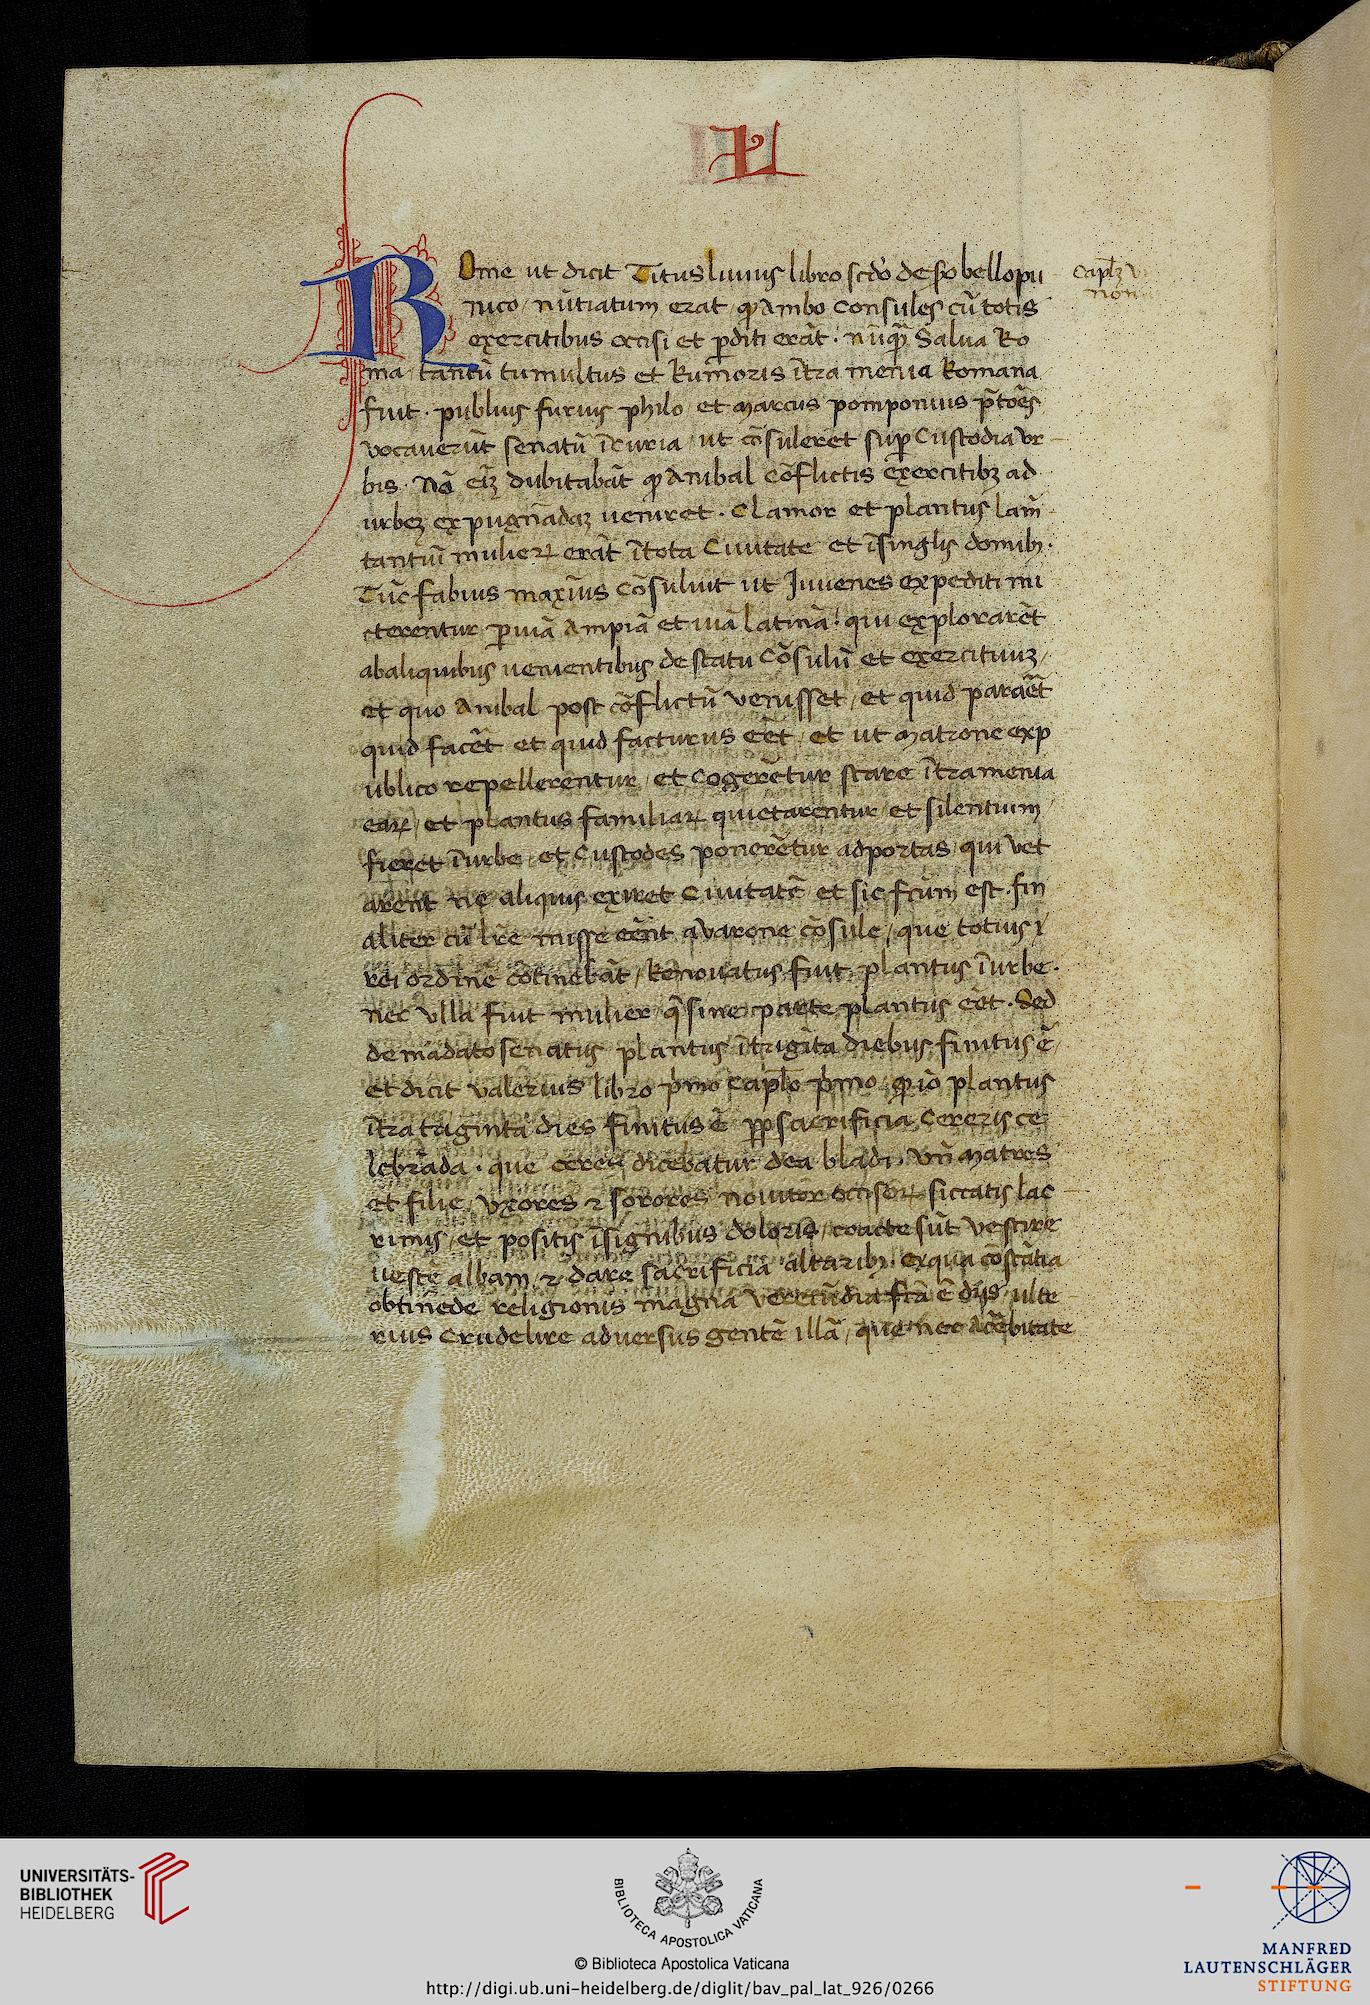 L
Rome ut dicit Titus liuius libro scdo de scdo bello pu
nico / nūtiatum erat / qp Ambo Consules cū totis
exercitibus occisi et p̱diti erāt · nūq̄ȝ Salua Ro
ma / tantū tumultus et Rumoris ītra menia Romana
fuit · publius furius philo / et Marcus pomponius p̄toēs
vocauerūt senatū ī curia / ut cōsuleret sup̱ Custodia vr
bis · Nō eīȝ dubitabāt qp Anibal cōflictis exercitibȝ ad
urbeȝ expugnādaȝ ueniret · Clamor et plantus lam̄
tantiū mulieꝝ erāt ītota Ciuitate et īsinglis domibȝ ·
Tūc fabius maxīus Cōsuluit ut Iuuenes expediti mi
cterentur p̱ uiā Ampiā et uiā latinā! qui explorarēt
ab aliquibus uenientibus de statu Cōsulū et exercituuȝ /
et quo Anibal post cōflictū venisset / et quid paraēt
quid facēt et quid facturus eēt / et ut Matrone exp
ublico repellerentur / et Cogerētur stare ītra menia
eaꝝ / et plantus familiaꝝ quietarentur / et silentium /
fieret īurbe / et Custodes ponerētur ad portas / qui vet
arent ne aliquis exiret Ciuitatē / et sic fcūm est · fin
aliter cū lr̄e misse eēnt a varone cōsule / que totius
rei ordinē cōtinebāt / Renouatus fuit plantus īurbe ·
nec vlla fuit mulier / q̄ sine parte plantus eēt · Sed
de mādato senatus plantus ītrigīta diebus finitus ē /
et dicit valerius libro p̍mo Caplo p̍mo / qp iō plantus
ītra triginta dies finitus ē pp̱ sacrificia Cereris ce
lebrāda · que ceres dicebatur dea bladi / vn̄ Matres
et filie / vxores ⁊ sorores nouiter occisoꝝ / siccatis lac
rimis / et positis īsignibus doloris / coacte sūt vestire
uestē albam / ⁊ dare sacrificia altaribȝ · ex qua cōstātia
obtinēde religionis magna verecūdia fcā ē diis / ulte
rius Crudelire aduersus gentē illā / que nec acēbitate
Caplȝ
UNIVERSITÄTS-
BIBLIOTHEK
HEIDELBERG
BIBLIOTECA APOSTOLICA VATICANA
© Biblioteca Apostolica Vaticana
http://digi.ub.uni-heidelberg.de/diglit/bav_pal_lat_926/0266
MANFRED
LAUTENSCHLÄGER
STIFTUNG